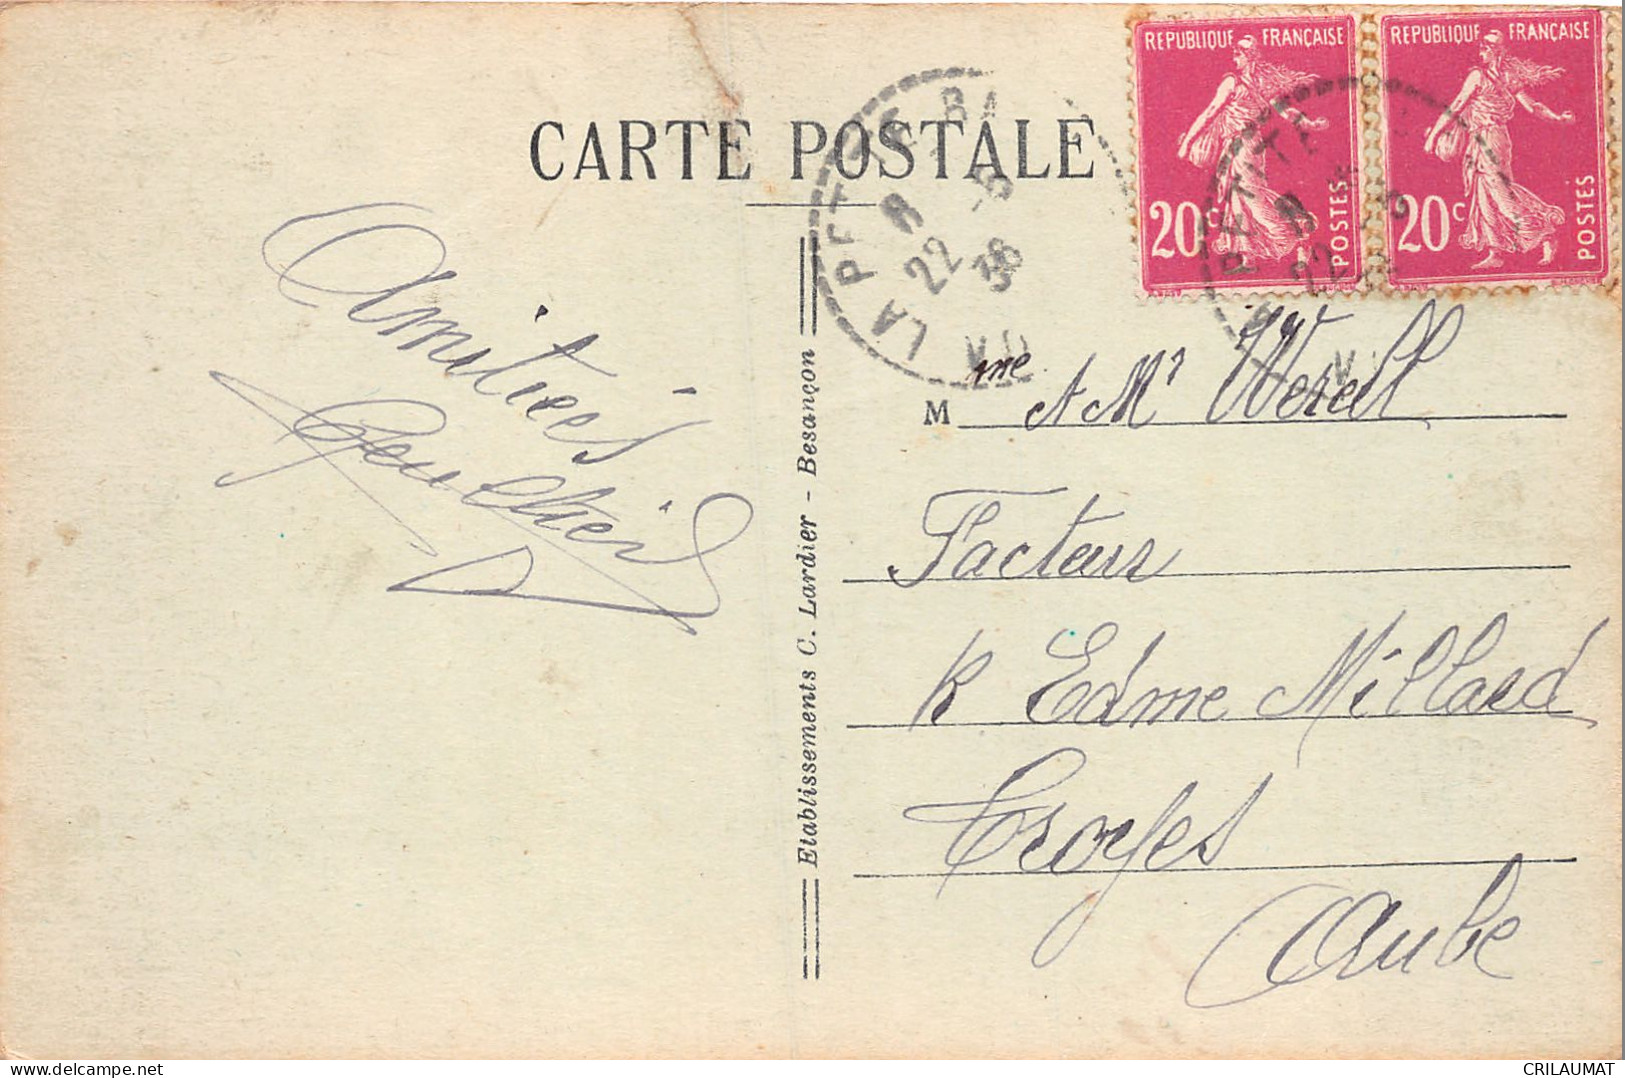 CARTE POSTALE
REPUBLIQUE FRANÇAISE
20c
POSTES
REPUBLIQUE FRANÇAISE
20c
POSTES
LA PETITE
22 -5
38
PETITE
22
Amitiés
Etablissements C. Lardier - Besançon
M me et Mr
Facteur
R Edme Millard
Troyes
Aube
CRILAUMAT